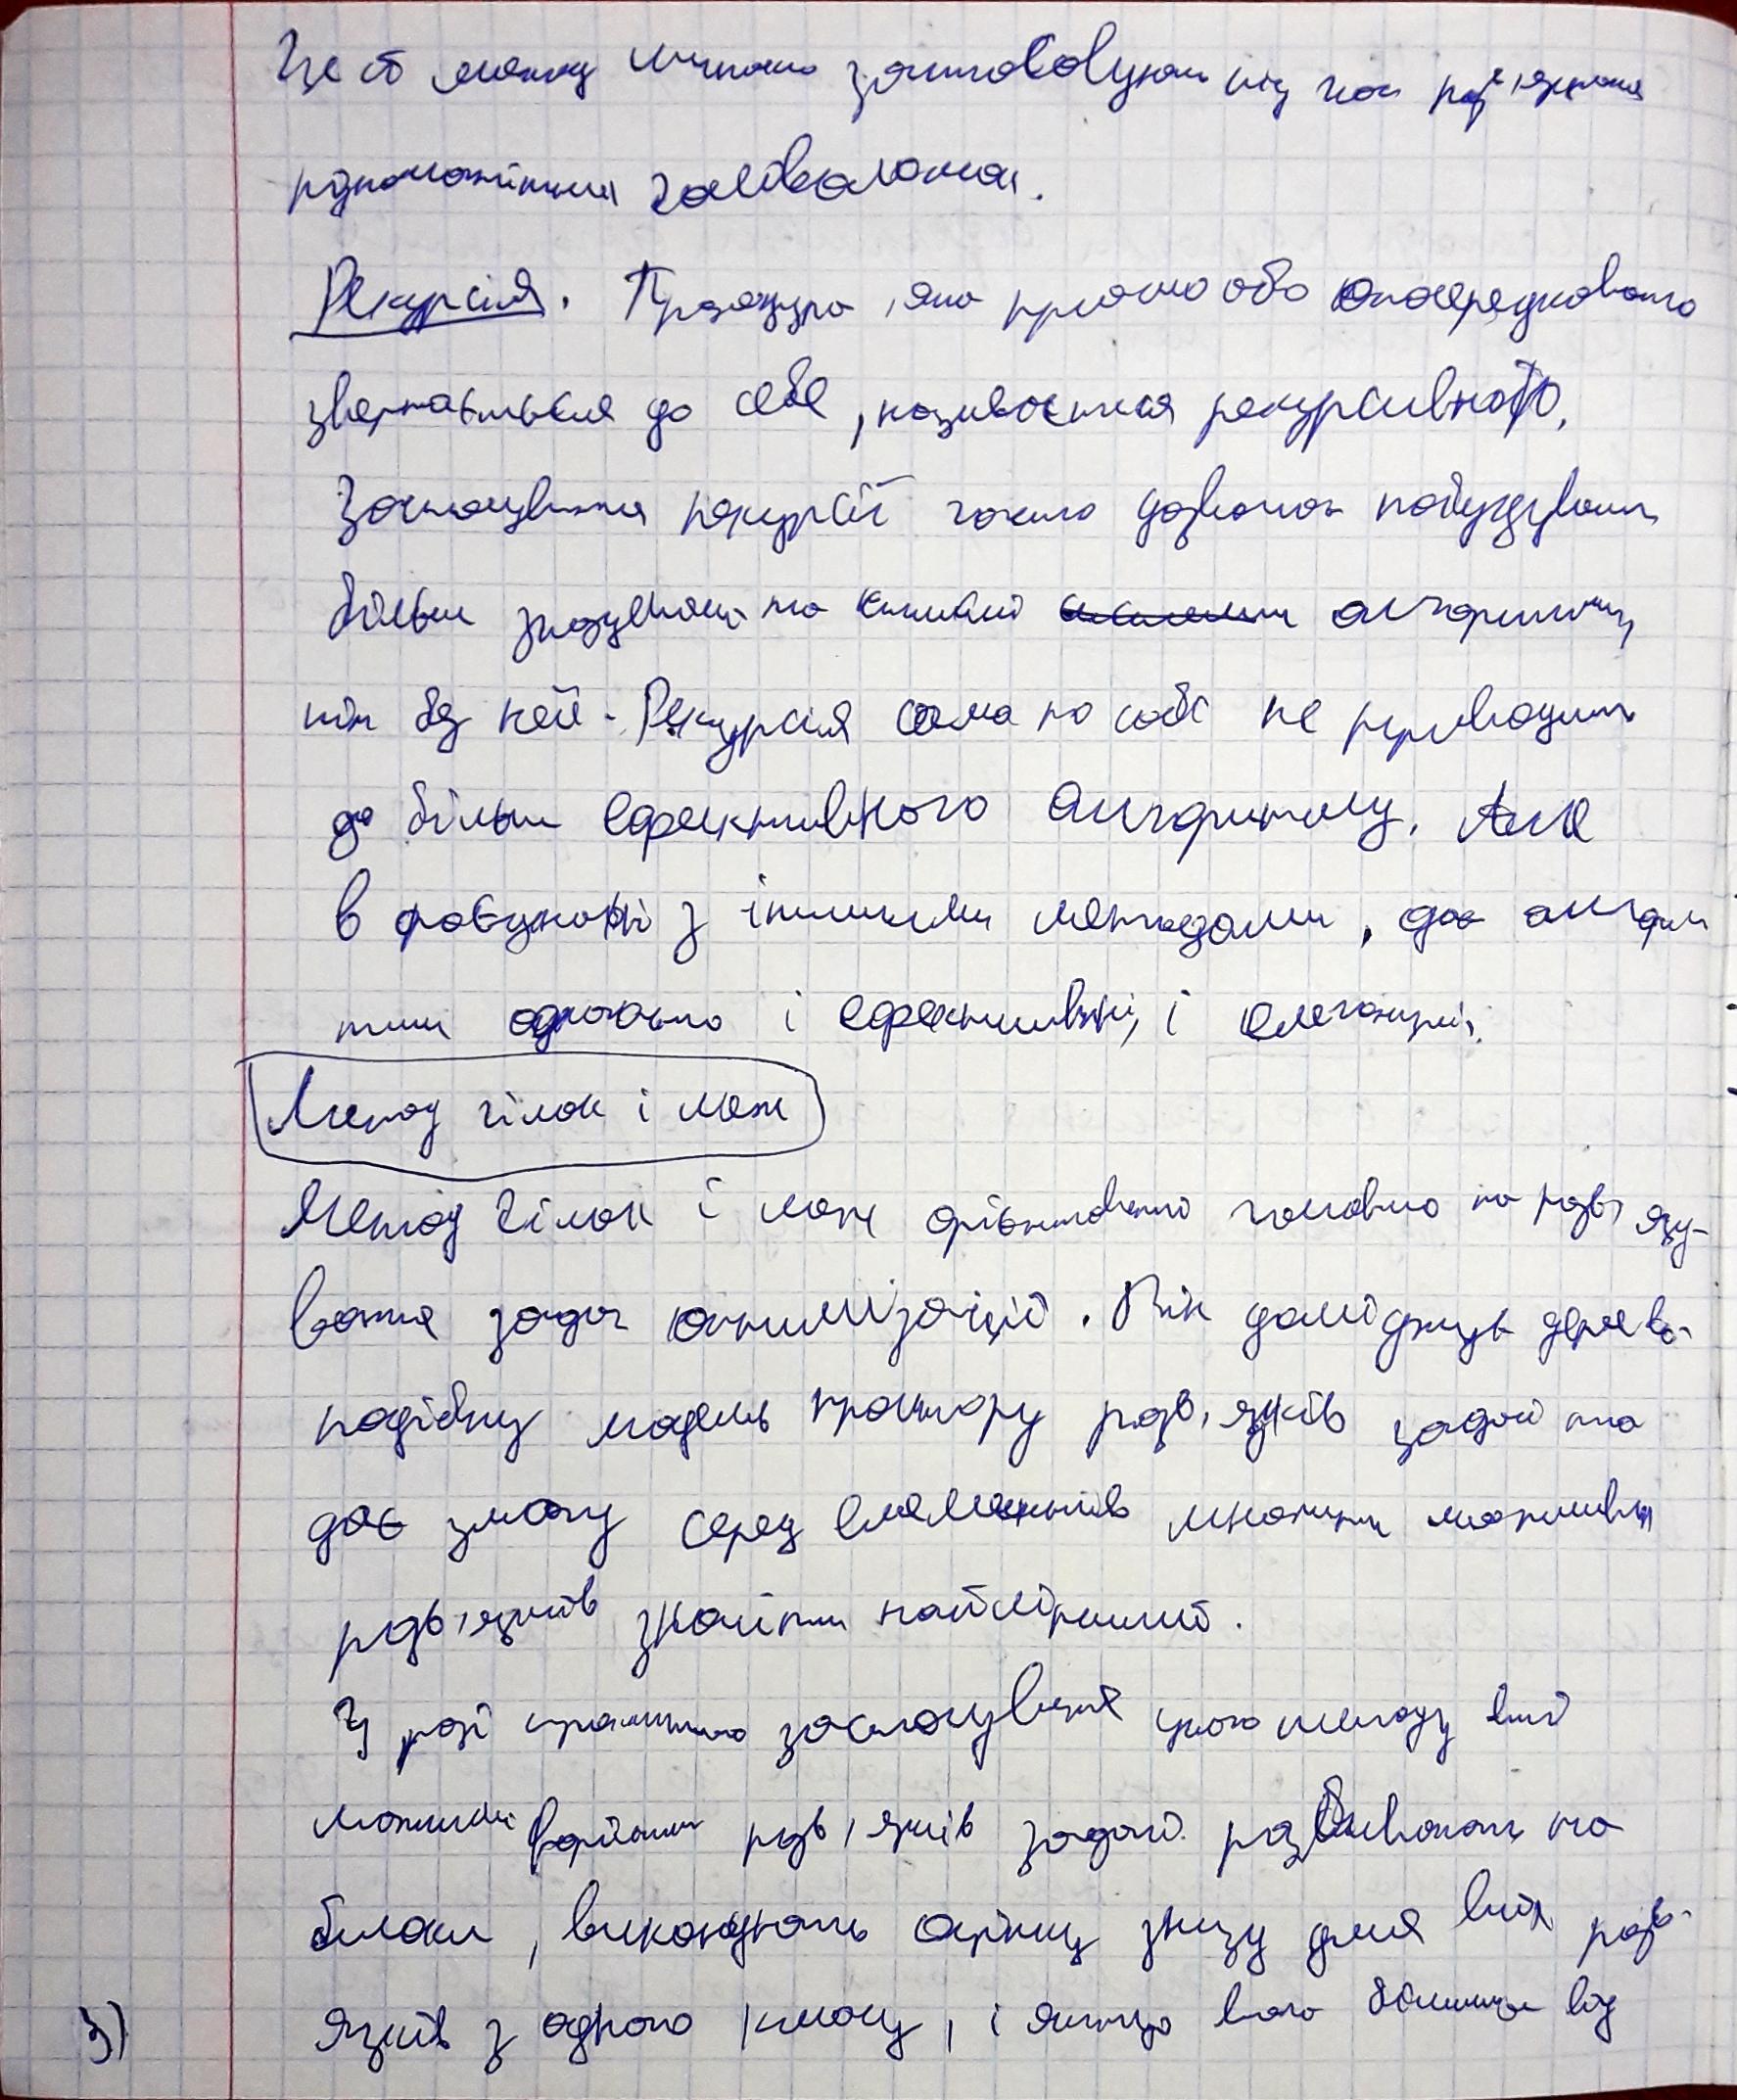 Цей метод успішно застосовують під час розв'язання
різноманітних головоломок.
Рекурсія. Процедура, яка прямо або опосередковано
звертається до себе, називається рекурсивною.
Застосування рекурсії часто дозволяє побудувати
більш зрозумілі та стислі алгоритми,
ніж без неї. Рекурсія сама по собі не приводить
до більш ефективного алгоритму. Але
в поєднанні з іншими методами, дає алгори
тми одночасно і ефективні, і елегантні.
Метод гілок і меж
Метод гілок і меж орієнтовано головно на розв'язу-
вання задач оптимізації. Він досліджує дерево-
подібну модель простору розв'язків задачі та
дає змогу серед елементів множини можливих
розв'язків знайти найліпший.
У разі практичного застосування цього методу всі
можливі варіанти розв'язків задачі розбивають на
блоки, виконують оцінку знизу для всіх розв-
язків з одного блоку, і якщо вона більша від
3)